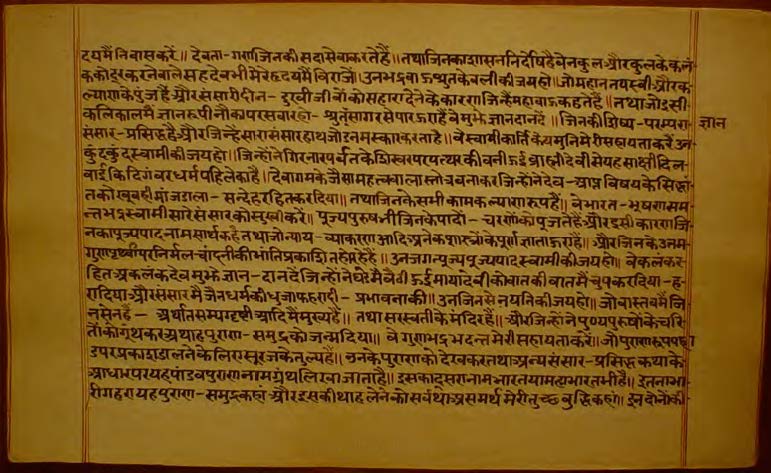 दयमैं निवासकरें॥ देवता-गणजिनकी सदा सेवाकरतेहैं॥ तथाजिनकाशासननिर्दोषहै वे नकुल और कुलके कलं
कको दूर करनेवाले सहदेवभी मेरे हृदयमें विराजें॥ उन भद्रबाहु श्रुतकेवलीकी जयहो॥ जो महान तपस्वी और क
ल्याणके पुंजहैं और संसारी दीन-दुखी जीवोंको सहारा देनेके कारण जिन्हें महाबाहु कहतेहैं॥ तथा जो इसी
कलिकालमें ज्ञानरूपी नौकापर सवारहो-श्रुतसागरसेपार हुएहैं वे मुझे ज्ञानदानदें॥ जिनकी शिष्य-परम्परा
ज्ञान
संसार-प्रसिद्धहै और जिन्हें सारा संसार हाथ जोड़ नमस्कार करताहै॥ वे स्वामी कार्तिकेय मुनि मेरी सहायता करें उन
कुंदकुंदस्वामीकी जयहो॥ जिन्होंने गिरनार पर्वतके शिखर पर पत्थरकी बनी हुई ब्राह्मी देवीसे यह साक्षी दिल
वाई कि दिगंबर धर्म पहिलेका है॥ देवागम के जैसा महत्ववाला स्तोत्र बनाकर जिन्होंने देव-आप्त विषयके सिद्धां
तको खूब ही मांजडाला-सन्देहरहितकरदिया॥ तथा जिनके सभी काम कल्याणरूपहैं॥ वे भारत-भूषण सम
न्तभद्र स्वामी सारे संसारको सुखी करें॥ पूज्यपुरुषभी जिनके पादों-चरणोंको पूजतेहैं और इसी कारण जि
नका पूज्यपाद नाम सार्थकहै तथा जो न्याय-व्याकरण आदि अनेक शास्त्रोंके पूर्ण ज्ञाता हुएहैं॥ और जिनके उत्तम
गुण पृथ्वीपर निर्मल चांदनीकी भांति प्रकाशित होरहेहैं॥ उन जगत्पूज्य पूज्यपादस्वामीकी जयहो॥ वे कलंकर
हित अकलंकदेव मुझे ज्ञान-दानदें जिन्होंने घड़ेमें बैठी हुई मायादेवीको बातकी बातमें चुपकरदिया-ह
रादिया और संसारमें जैनधर्मकी धुजाफहरादी-प्रभावनाकी॥ उन जिनसेन यतिकी जयहो॥ जो वास्तवमें जि
नसेनहैं-अर्थात सम्यग्दृष्टी आदिमें मुख्यहैं॥ तथा सरस्वतीके मंदिरहैं॥ और जिन्होंने पुण्य पुरुषोंके चरि
तोंको गूंथकर अथाह पुराण-समुद्रको जन्मदिया॥ वे गुणभद्र भदन्त मेरी सहायता करें॥ जो पुराणरूप
उपर प्रकाश डालनेके लिए सूरजके तुल्यहैं॥ उनके पुराणको देखकर तथा अन्य संसार-प्रसिद्ध कथाके
आधारपर यह पांडवपुराण नाम ग्रंथ लिखा जाताहै॥ इसका दूसरा नाम भारत या महाभारतभी है॥ इतना भा
री गहरा यह पुराण-समुद्रकहां और इसकी थाह लेनेको सर्वथा असमर्थ मेरी तुच्छ बुद्धिकहां॥ इन दोनोंकी